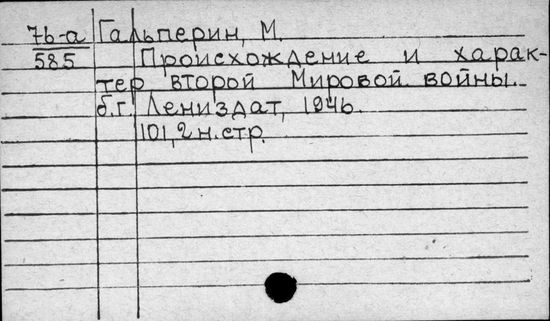 7б-а Гальперин, М.
585 Происхождение и харак-
тер второй Мировой войны.
б.г. Лениздат, 1946.
101, 2 н.стр.